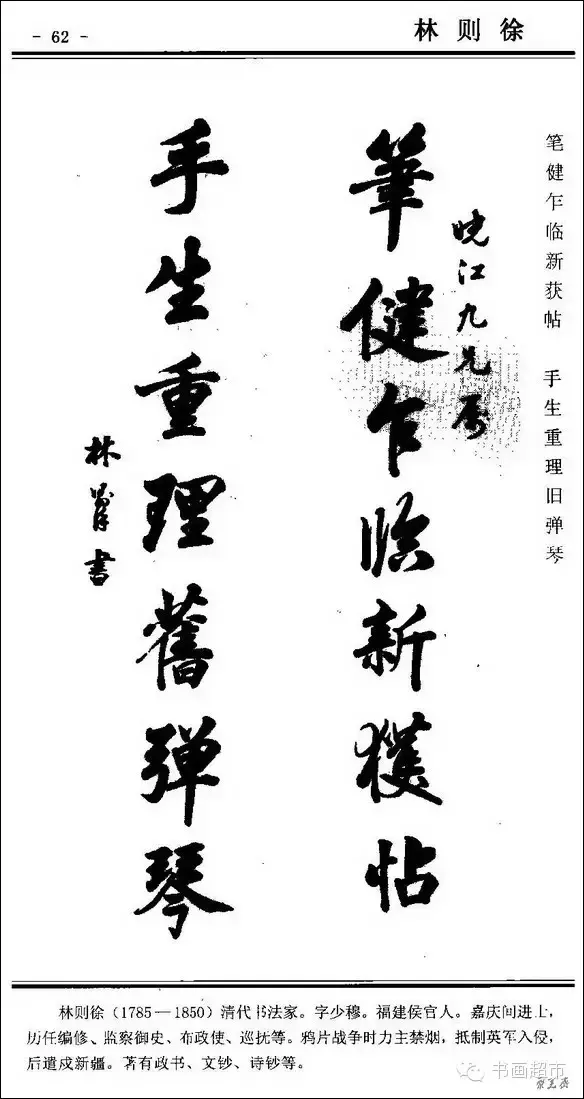 - 62 -
林则徐
笔健乍临新获帖　手生重理旧弹琴
晓江九兄属
筆健乍临新獲帖
手生重理舊弹琴
林則徐書
林则徐（1785—1850）清代书法家。字少穆。福建侯官人。嘉庆间进士，
历任编修、监察御史、布政使、巡抚等。鸦片战争时力主禁烟，抵制英军入侵，
后遣戍新疆。著有政书、文钞、诗钞等。
书画超市